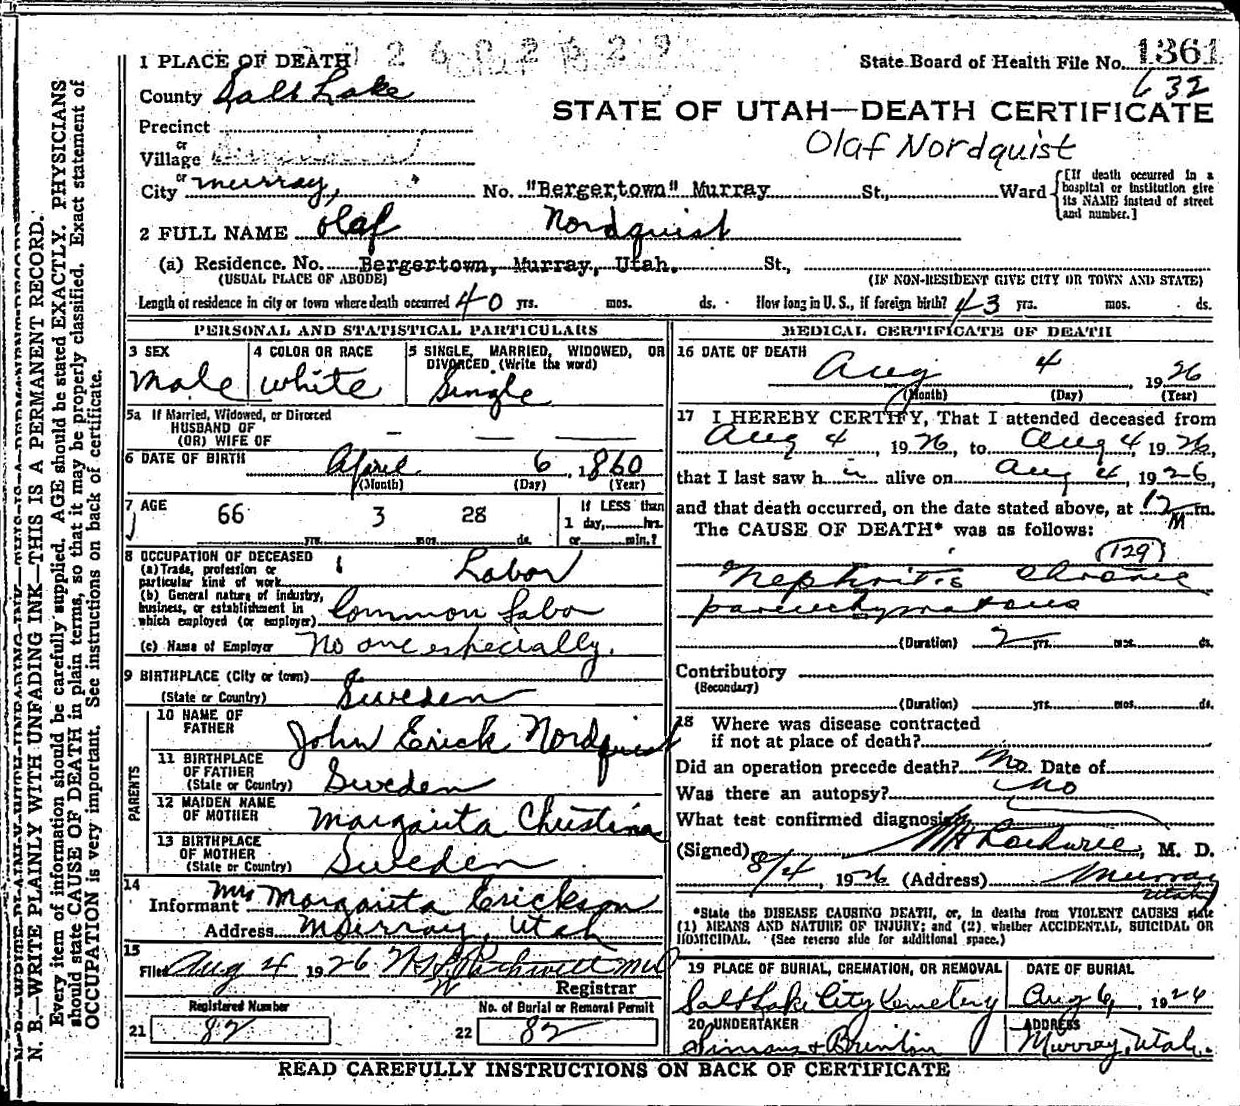 1361
State Board of Health File No. 632
1 PLACE OF DEATH
County Salt Lake
STATE OF UTAH—DEATH CERTIFICATE
Olaf Nordquist
Precinct
or
Village
or
City Murray, No. "Bergertown" Murray St., Ward
[If death occurred in a
hospital or institution give
its NAME instead of street
and number.]
2 FULL NAME Olaf Nordquist
(a) Residence. No. Bergertown, Murray, Utah. St.,
(USUAL PLACE OF ABODE) (IF NON-RESIDENT GIVE CITY OR TOWN AND STATE)
Length of residence in city or town where death occurred 40 yrs. mos. ds. How long in U. S., if foreign birth? 43 yrs. mos. ds.
PERSONAL AND STATISTICAL PARTICULARS
3 SEX
Male
4 COLOR OR RACE
White
5 SINGLE, MARRIED, WIDOWED, OR
DIVORCED (Write the word)
Single
5a If Married, Widowed, or Divorced
HUSBAND OF
(OR) WIFE OF
6 DATE OF BIRTH April 6, 1860
(Month) (Day) (Year)
7 AGE 66 yrs. 3 mos. 28 ds.
If LESS than
1 day, hrs.
or min.?
8 OCCUPATION OF DECEASED
(a) Trade, profession or
particular kind of work Labor
(b) General nature of industry,
business, or establishment in
which employed (or employer) Common Labo
(c) Name of Employer No one especially.
9 BIRTHPLACE (City or town)
(State or Country) Sweden
PARENTS
10 NAME OF
FATHER John Erick Nordquist
11 BIRTHPLACE
OF FATHER
(State or Country) Sweden
12 MAIDEN NAME
OF MOTHER Margarita Christina
13 BIRTHPLACE
OF MOTHER
(State or Country) Sweden
14
Informant Mrs Margarita Erickson
Address Murray, Utah
15
Filed Aug 4 1926
Registrar
Registered Number
21 82
No. of Burial or Removal Permit
22 82
MEDICAL CERTIFICATE OF DEATH
16 DATE OF DEATH
Aug 4, 1926
(Month) (Day) (Year)
17 I HEREBY CERTIFY, That I attended deceased from
Aug 4, 1926, to Aug 4, 1926,
that I last saw him alive on Aug 4, 1926,
and that death occurred, on the date stated above, at 12 M m.
The CAUSE OF DEATH* was as follows:
129
Nephritis Chronic
parenchymatous
(Duration) 2 yrs. mos. ds.
Contributory
(Secondary)
(Duration) yrs. mos. ds.
18 Where was disease contracted
if not at place of death?
Did an operation precede death? No. Date of
Was there an autopsy? No
What test confirmed diagnosis
(Signed) , M. D.
8/4, 1926 (Address) Murray
Utah
*State the DISEASE CAUSING DEATH, or, in deaths from VIOLENT CAUSES state
(1) MEANS AND NATURE OF INJURY; and (2) whether ACCIDENTAL, SUICIDAL OR
HOMICIDAL. (See reverse side for additional space.)
19 PLACE OF BURIAL, CREMATION, OR REMOVAL
Salt Lake City Cemetery
DATE OF BURIAL
Aug 6, 1926
20 UNDERTAKER
Simons & Brinton
ADDRESS
Murray, Utah.
READ CAREFULLY INSTRUCTIONS ON BACK OF CERTIFICATE
N. B.—WRITE PLAINLY WITH UNFADING INK—THIS IS A PERMANENT RECORD.
Every item of information should be carefully supplied. AGE should be stated EXACTLY. PHYSICIANS
should state CAUSE OF DEATH in plain terms, so that it may be properly classified. Exact statement of
OCCUPATION is very important. See instructions on back of certificate.